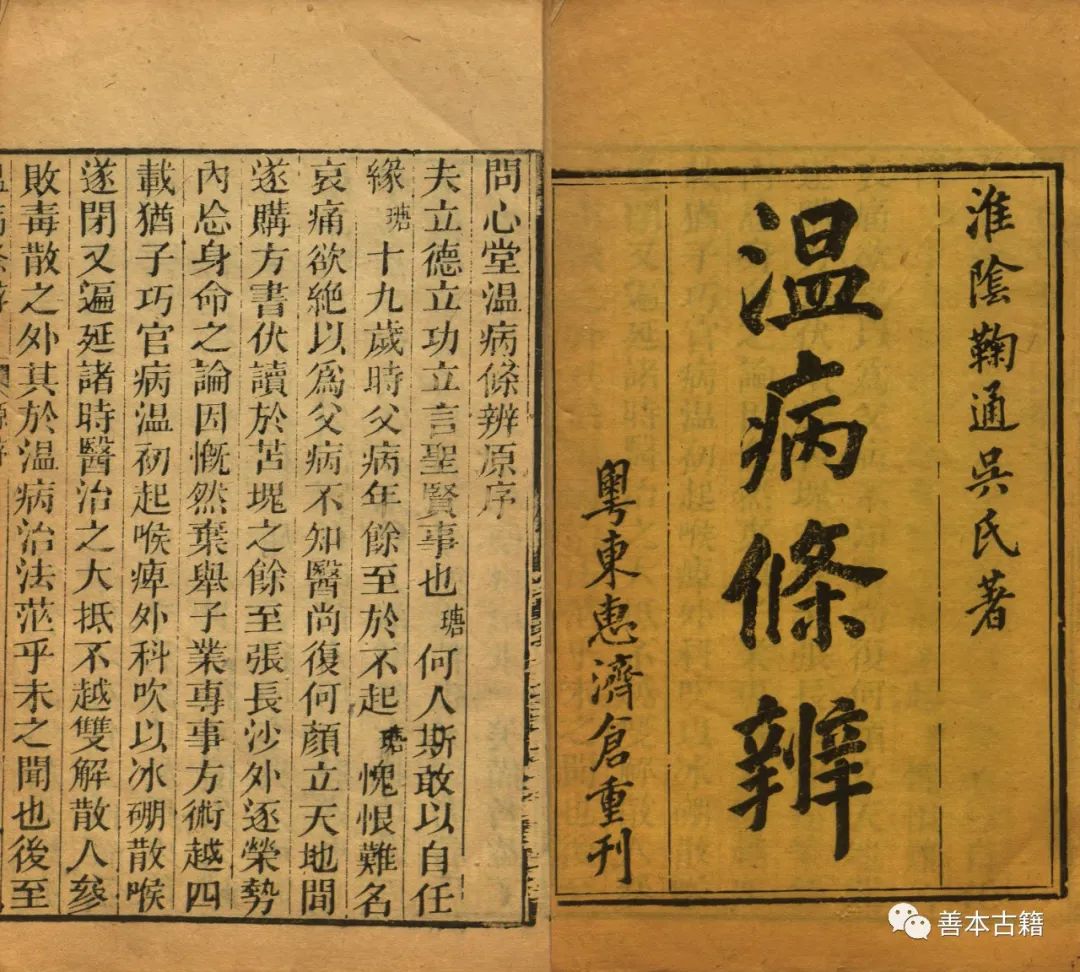 淮陰鞠通吳氏著
温病條辨
粵東惠濟倉重刊
問心堂温病條辨原序
夫立德立功立言聖賢事也瑭何人斯敢以自任
緣瑭十九歲時父病年餘至於不起瑭愧恨難名
哀痛欲絕以為父病不知醫尚復何顏立天地間
遂購方書伏讀於苫塊之餘至張長沙外逐榮勢
內忘身命之論因慨然棄舉子業專事方術越四
載猶子巧官病温初起喉痺外科吹以冰硼散喉
遂閉又遍延諸時醫治之大抵不越雙解散人參
敗毒散之外其於温病治法茫乎未之聞也後至
善本古籍